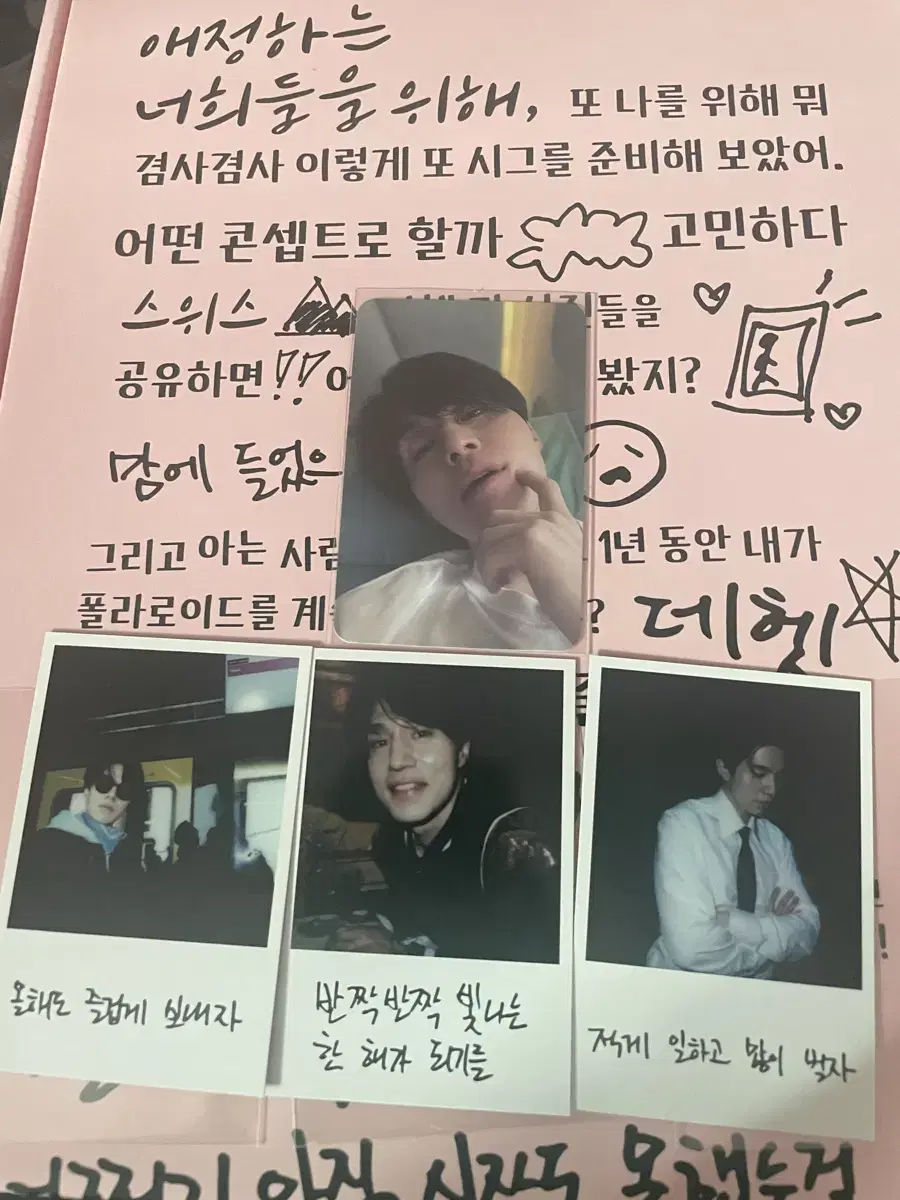 애정하는
너희들을 위해, 또 나를 위해 뭐
겸사겸사 이렇게 또 시그를 준비해 보았어.
어떤 콘셉트로 할까 고민하다
스위스 들을
공유하면!! 봤지?
맘에 들었으
그리고 아는 사람 1년 동안 내가
폴라로이드를 계속 ? 데헷
올해도 즐겁게 보내자
반짝반짝 빛나는
한 해가 되기를
적게 일하고 많이 벌자
아직 시작도 못했는걸